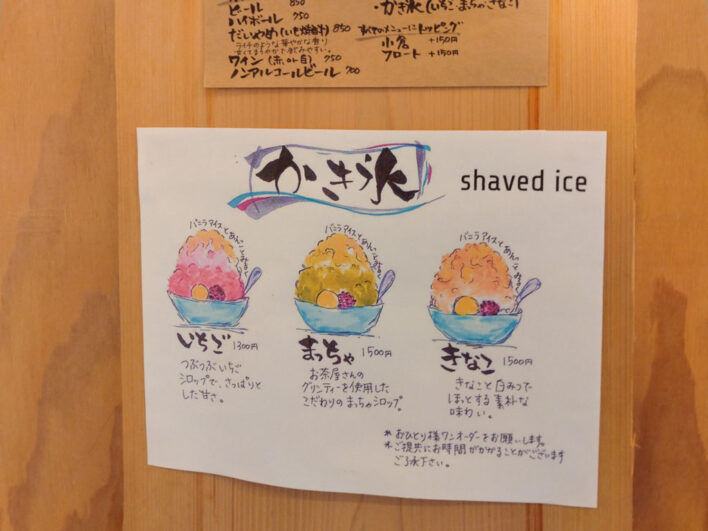 ビール 850
ハイボール 750
だいやめ(いも焼酎) 850
ライチのような華やかな香り
ワイン(赤or白) 750
ノンアルコールビール 700
・かき氷(いちご、まっちゃ、きなこ)
すべてのメニューにトッピング
小倉 +150円
フロート +150円
かき氷
shaved ice
バニラアイスとあんことみるく
いちご 1300円
つぶつぶいちご
シロップで、さっぱりと
した甘さ。
バニラアイスとあんこ
まっちゃ 1500円
お茶屋さんの
グリンティーを使用した
こだわりのまっちゃシロップ。
バニラアイスとあんこ
きなこ 1500円
きなこと白みつで
ほっとする素朴な
味わい。
*おひとり様ワンオーダーをお願いします。
*ご提供にお時間がかかることがございます
ご了承下さい。